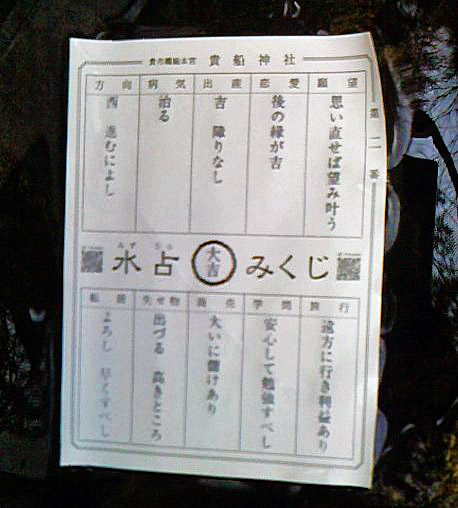 貴船神社
第二番
願望
思い直せば望み叶う
恋愛
後の縁が吉
出産
吉 障りなし
病気
治る
方向
西 進むによし
みず うら
水占 大吉 みくじ
旅行
遠方に行き利益あり
学問
安心して勉強すべし
商売
大いに儲けあり
失せ物
出づる 高きところ
転居
よろし 早くすべし